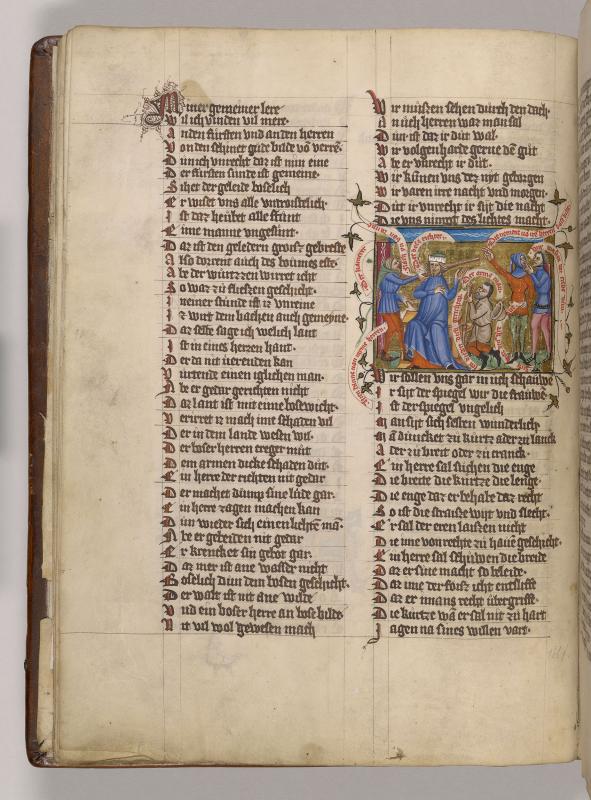 Miner gemeiner lere
Wil ich vinden vil mere
An den fursten vnd an den herren
Von den schinet gude bilde vō verrē
Dun ich vnrecht daz ist min eine
Der fursten sunde ist gemeine
Siht der geleide boslich
Er wiset vns alle vntroistelich
Ist daz heubet alle stunt
Eime manne vngesunt
Daz ist den geledern groisz gebreste
Also dorrent auch des boumes este
Abe der wurtzen wirret icht
So war zu flieszen geschicht
Jn einer stunde ist iz vnreine
Iz wirt dem bachen auch gemeyne
Daz selbe sage ich welich lant
Ist in eines herzen hant
Der da nit verenden kan
Virtende einen iglichen man
Abe er gedar gerichten nicht
Daz lant ist mit eime bosewicht
Verirret iz mach ime schaden vil
Der in dem lande wesen wil
Der boser herren erger mut
Dem armen dicke schaden dut
Ein herre der richten nit gedar
Der machet dump sine lude gar
Ein herre zagen machen kan
Dun wieder sich einen lichtē mā
Abe er gebeiden nit gedar
Er krencket sin gebot gar
Daz mer ist ane wasser nicht
Boslich dun dem bosen geschicht
Der walt ist nit ane wilde
Vnd ein boser herre an bose bilde
Nit vil wol gewesen mach
Wir muszen sehen durch den dach
Anuch herren war man sal
Dun ist daz ir dut wal
Wir volgen harte gerne dem gut
Abe er vnrecht ir dut
Wir kunnen vns des nyt geborgen
Wir varen irre nacht vnd morgen
Dut ir vnrecht ir sijt die nacht
Die vns nimet des liechtes macht
Wir sollen vns gar in uch schauwē
Ir sijt der spiegel wir die frauwē
Ist der spiegel vngelich
Man siht sich selben wunderlich
Man duncket zu kurtz ader zu lanck
Ader zu breit oder zu cranck
Ein herre sal suchen die enge
Die breite die kurtze die lenge
Die enge daz er behabe daz recht
So ist die strasse wijt vnd slecht
Er sal der eren laiszen nicht
Die ime von rechte zu hauē geschicht
Ein herre sal schuwen die breide
Daz er sine macht so beleide
Daz ime der foisz icht entsliffe
Daz er imans recht ubergriffe
Die kurtze wā er sal nit zu hart
Jagen na sines willen vart